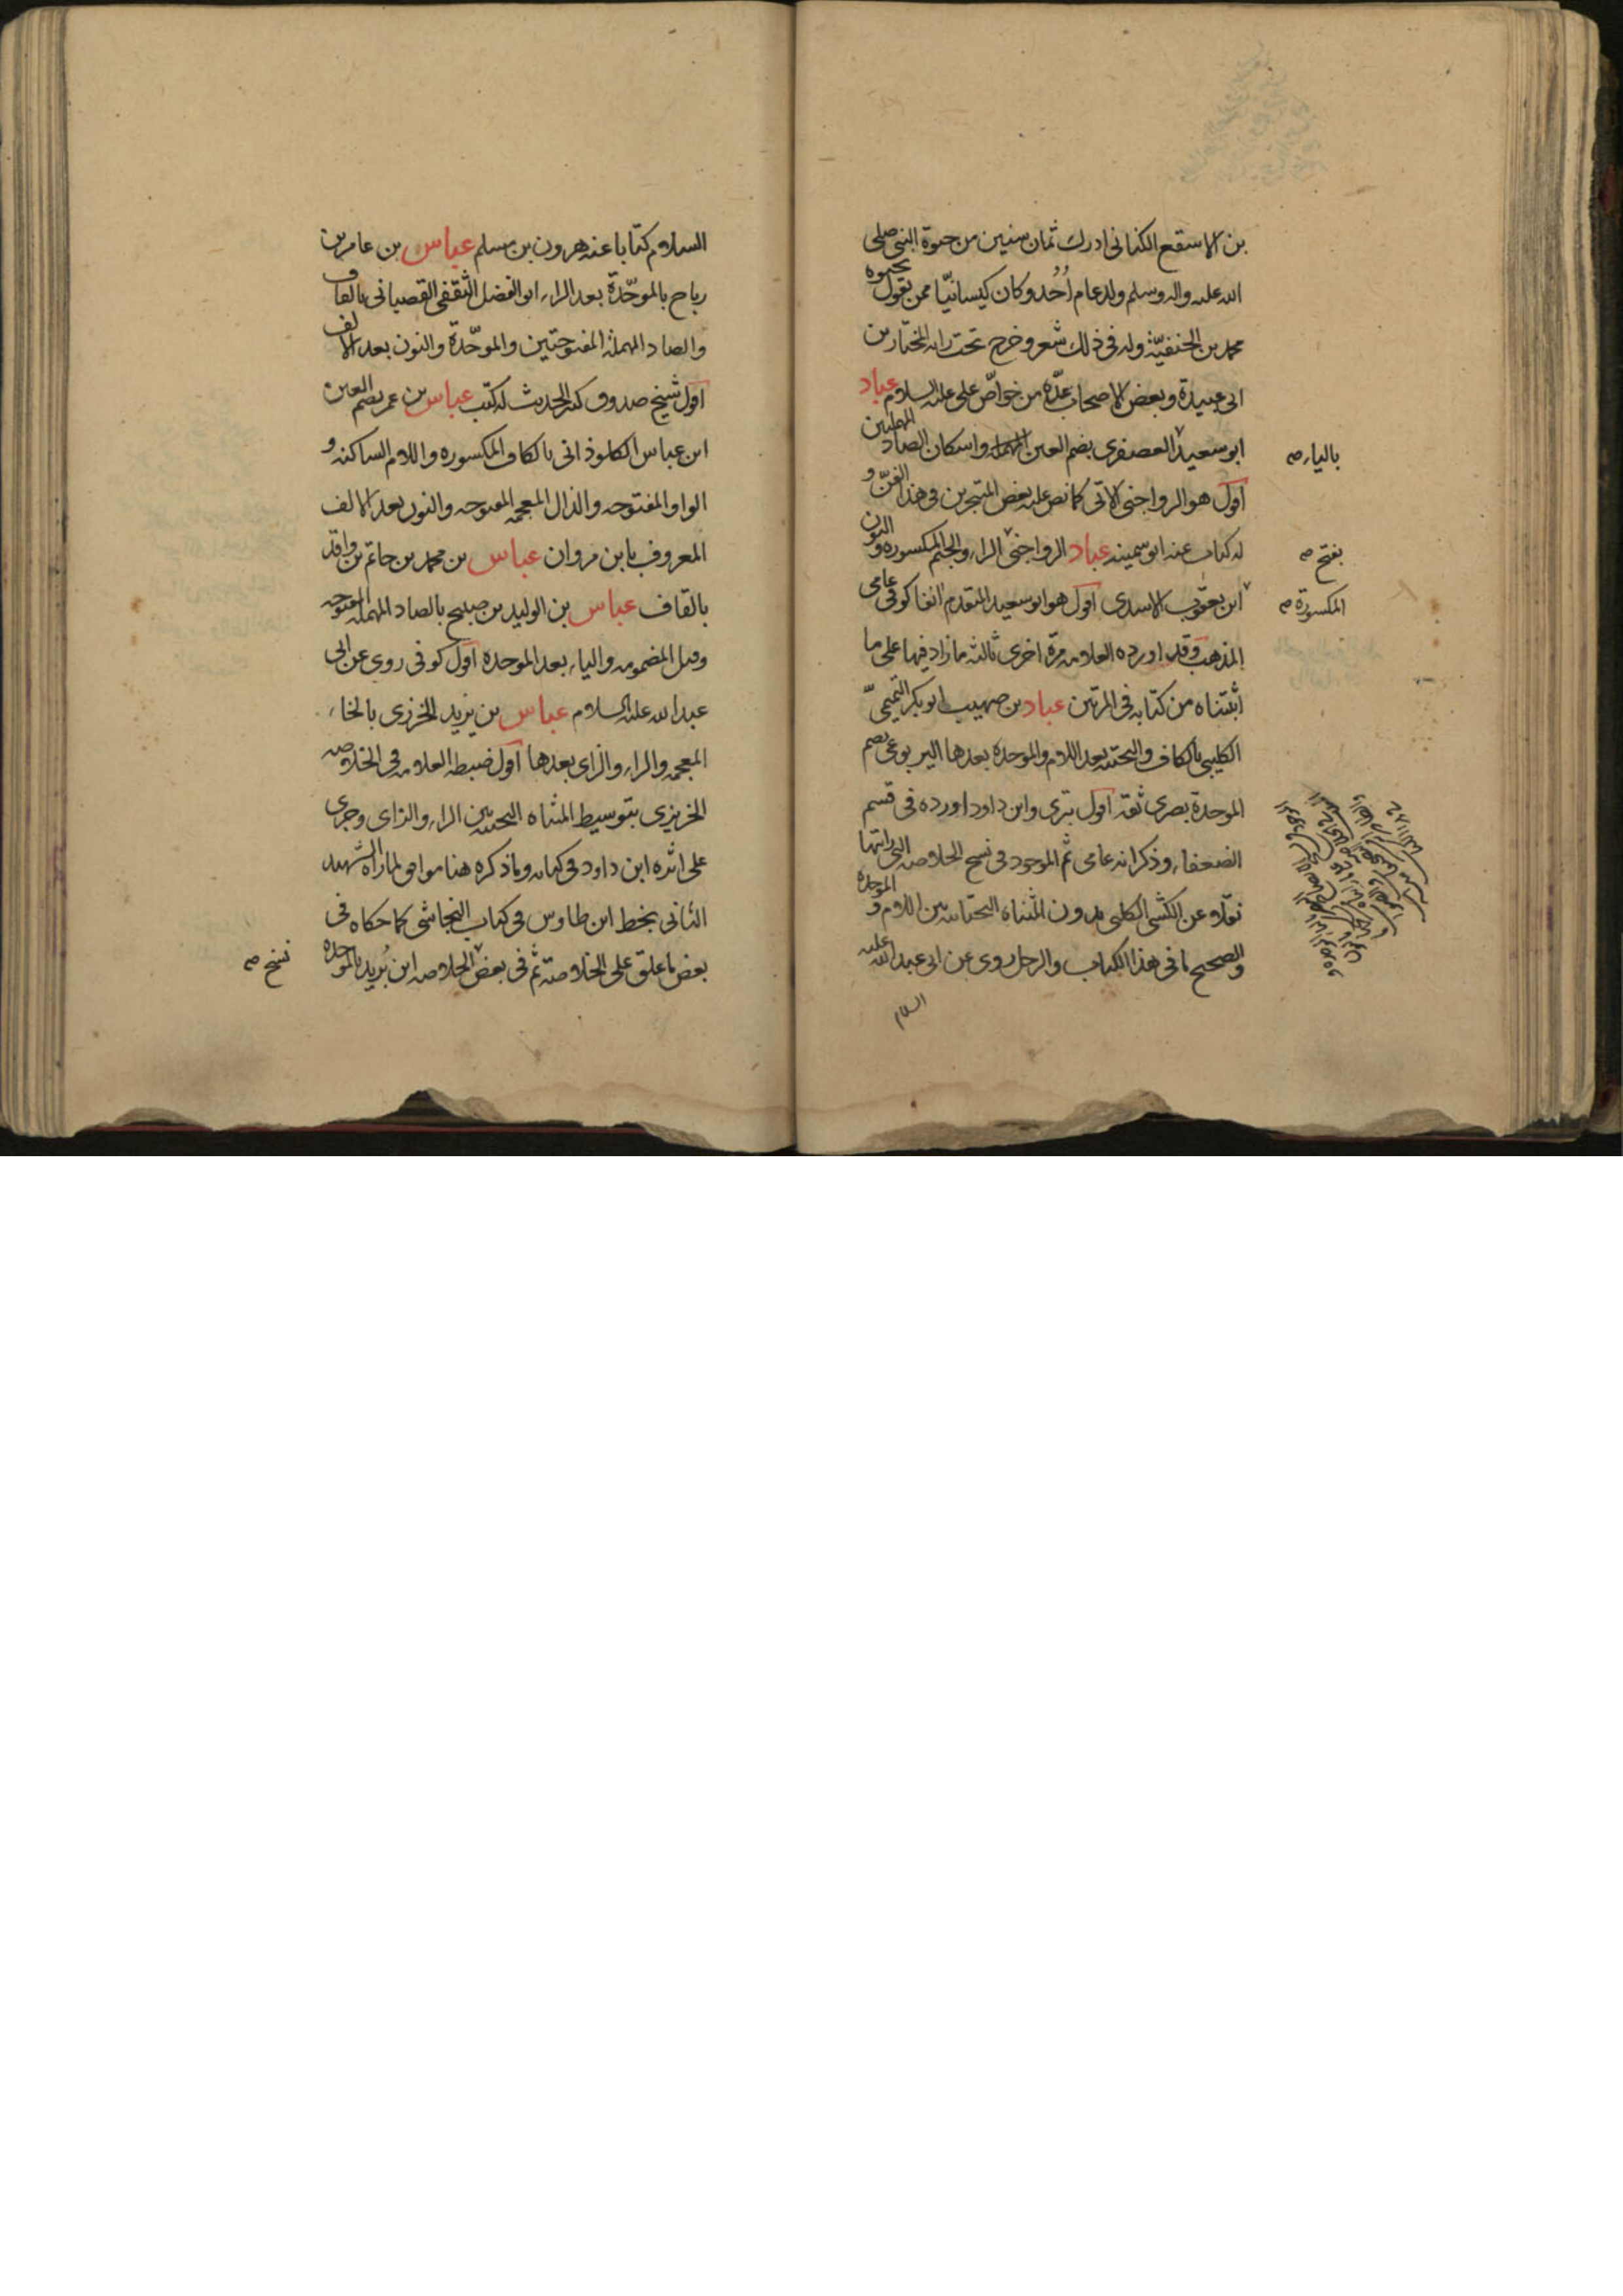 بن الاسقع الكنانى ادرك ثمان سنين من حيوة النبى صلى
الله عليه واله وسلم ولد عام اُحُد وكان كيسانيّا ممن يقول بحيوه
محمد بن الحنفيّة وله فى ذلك شعر وخرج تحت رايه المختار بن
ابى عبيدة وبعض الاصحاب عدّه من خواصّ على عليه السلام عباد
ابو سعيد العصفرى بضم العين المهمله واسكان الصاد المهملتين
بالياء صه
اقول هو الرواجنى الاتى كما نص عليه بعض المتبحرين فى هذا الفنّ و
له كتاب عنه ابو سمينه عباد الرواجنى الراء والجيم المكسوره والنون
بفتح صه
ابن يعقوب الاسدى اقول هو ابو سعيد المتقدم انفا كوفى عامى
المكسورة صه
المذهب وقد اورده العلامه مرّة اخرى ثالثه ما زاد فيها على ما
اثبتناه من كتابه فى المرتين عباد بن صهيب ابو بكر التميمىّ
الكليبى بالكاف والتحتيه بعد اللام والموحده بعدها اليربوعى بضم
الموحدة بصرى ثقة اقول بترى وابن داود اورده فى قسم
الضعفاء وذكر انه عامى ثم الموجود فى نسخ الخلاصه التى رايتها
نقلا عن الكشى الكلبى بدون المثناه التحتانيه بين اللام والموحده
والصحيح ما فى هذا الكتاب والرجل روى عن ابى عبد الله عليه
السلام
السلام كتابا عنه هرون بن مسلم عباس بن عامر بن
رباح بالموحّدة بعد الراء ابو الفضل الثقفى القصبانى بالقاف
والصاد المهملة المفتوحتين والموحّدة والنون بعد الالف
اقول شيخ صدوق كثير الحديث له كتب عباس بن عمر بضم العين
ابن عباس الكلوذانى بالكاف المكسوره واللام الساكنه و
الواو المفتوحه والذال المعجمه المفتوحه والنون بعد الالف
المعروف بابن مروان عباس بن محمد بن حاتم بن واقد
بالقاف عباس بن الوليد بن صبيح بالصاد المهمله المفتوحه
وقيل المضمومه والياء بعد الموحده اقول كوفى روى عن ابى
عبد الله عليه السلام عباس بن يزيد الخرزى بالخاء
المعجمه والراء والزاى بعدها اقول ضبطه العلامه فى الخلاصه
الخريزى بتوسيط المثناه التحتيه بين الراء والزاى وجرى
على اثره ابن داود فى كتابه وما ذكره هنا موافق لما راه الشهيد
الثانى بخط ابن طاوس فى كتاب النجاشى كما حكاه فى
بعض ما علق على الخلاصة ثم فى بعض الخلاصه ابن بُريد بالموحده
نسخ صه